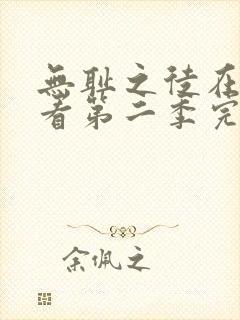 無耻之徒在
看第二季完
余佩之